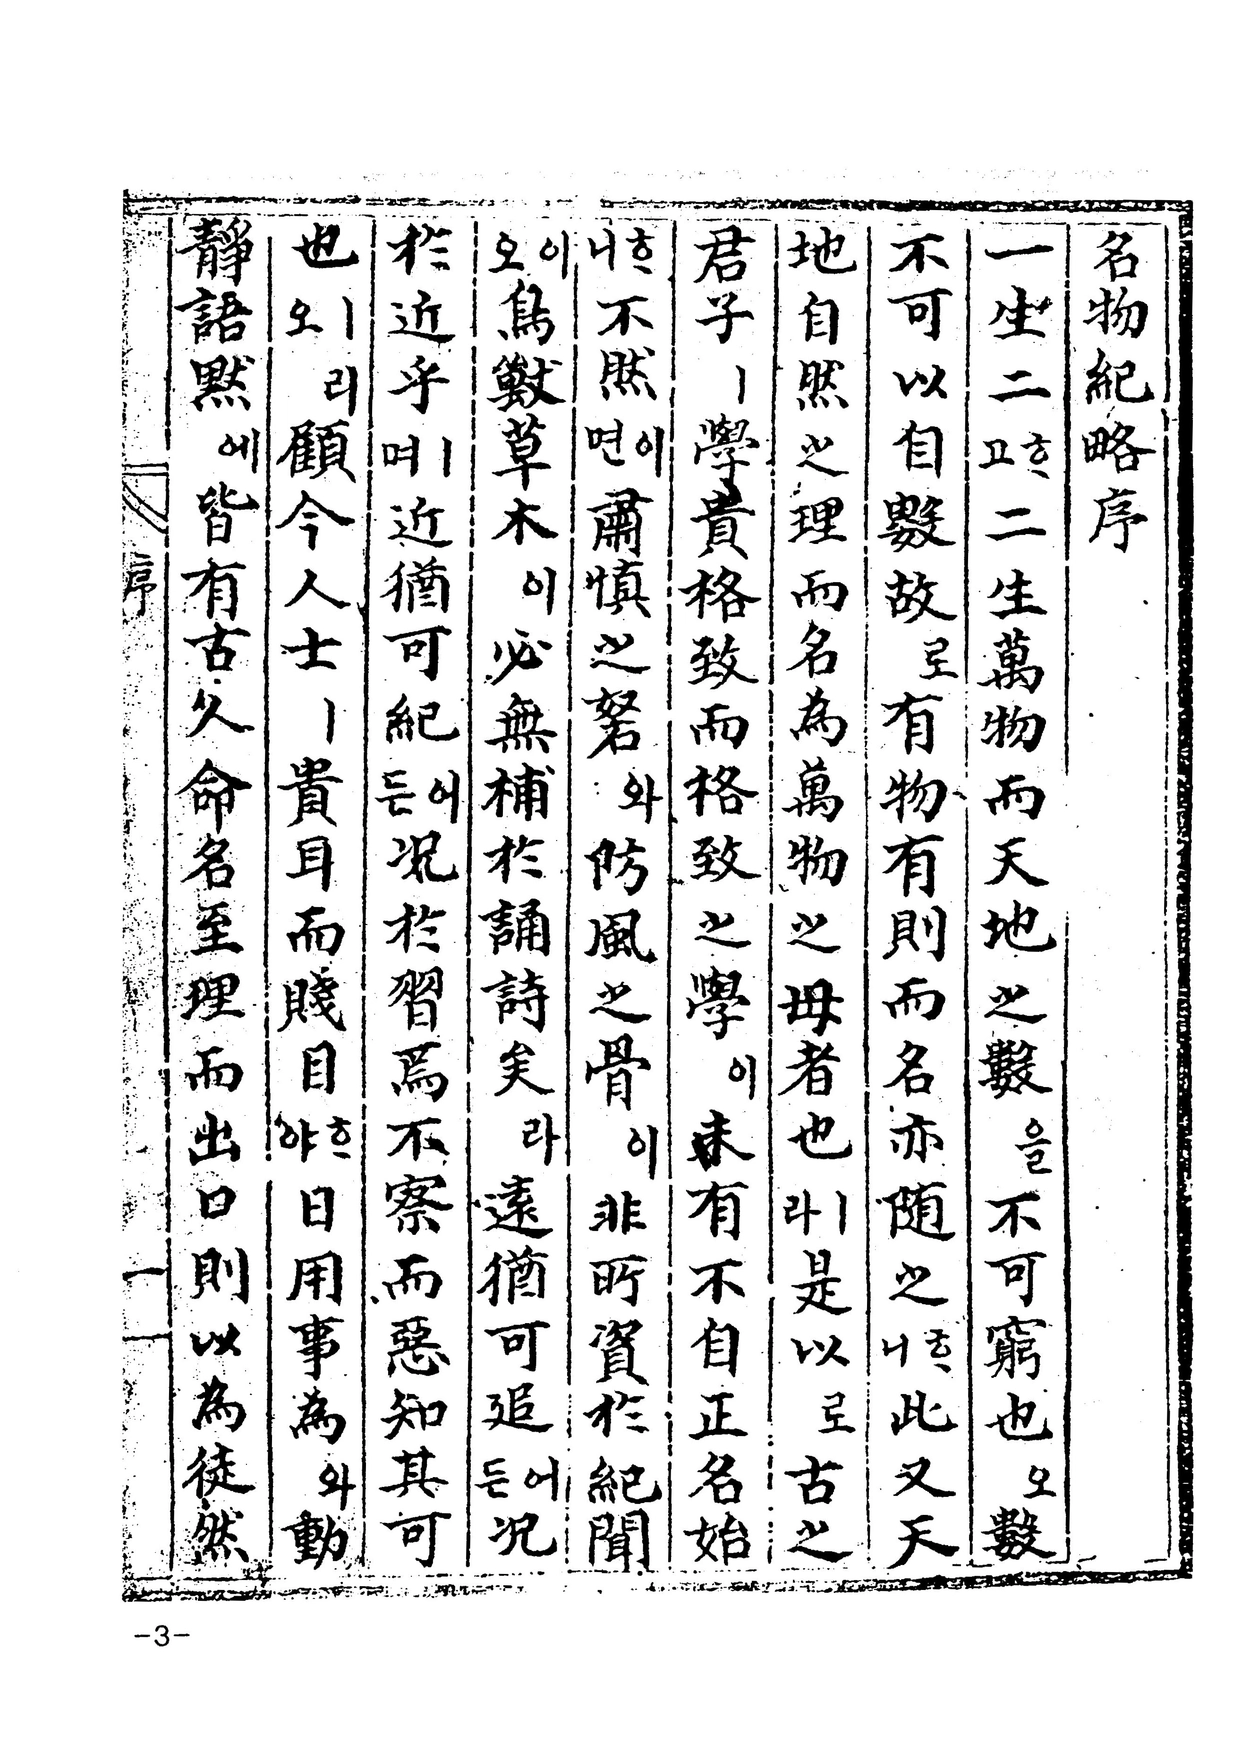 名物紀略序
一生二ᄒᆞ고二生萬物而天地之數을不可窮也오數
不可以自數故로有物有則而名亦随之ᄒᆞ니此又天
地自然之理而名為萬物之母者也ㅣ라是以로古之
君子ㅣ學貴格致而格致之學이未有不自正名始
ᄒᆞ니不然이면肅慎之砮와防風之骨이非所資於紀聞
이오鳥獸草木이必無補於誦詩矣라遠猶可追어든况
於近乎ㅣ며近猶可紀어든况於習焉不察而惡知其可
也ㅣ오리顧今人士ㅣ貴耳而賤目ᄒᆞ야日用事為와動
靜語黙에皆有古久命名至理而出口則以為徒然
序 一
-3-